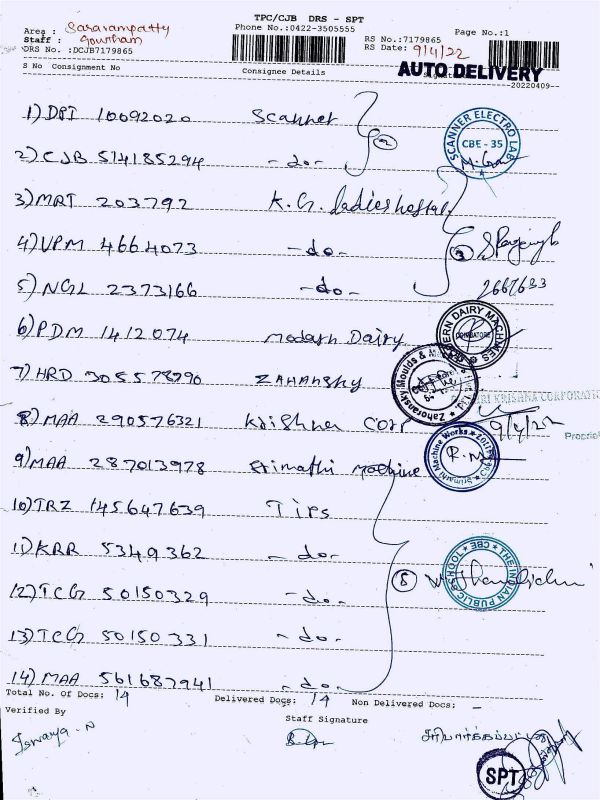 TPC/CJB DRS - SPT
Area : Saravampatty
Phone No.:0422-3505555
Page No.:1
Staff : Gowtham
RS No.:7179865
DRS No. :DCJB7179865
RS Date: 9/4/22
S No Consignment No
Consignee Details
AUTO DELIVERY
20220409--
1) DPI 10092020 Scanner
SCANNER ELECTRO LAB
CBE - 35
2) CJB 514185294 -do-
3) MRT 203792 K.G. ladies hostal
4) VPM 4664073 -do-
3
5) NGL 2373166 -do-
2667633
6) PDM 1412074 Modash Dairy
7) HRD 305578290 ZAHANSKY
Zahransky Moulds &
8) MAA 290576321 Krishna Corp
KRISHNA CORPORATION
9/4/22
Propriet
9) MAA 287013978 Srimathi Machine
Srimathi Machine Works
10) TRZ 145647639 Tips
11) KRR 5349362 -do-
5
THE INDIAN PUBLIC SCHOOL
CBE
12) TCG 50150329 -do-
13) TCG 50150331 -do-
14) MAA 561687941 -do-
Total No. Of Docs: 14 Delivered Docs: 14 Non Delivered Docs: -
Verified By
Staff Signature
சரிபார்க்கப்பட்டது
Iswarya - N
SPT